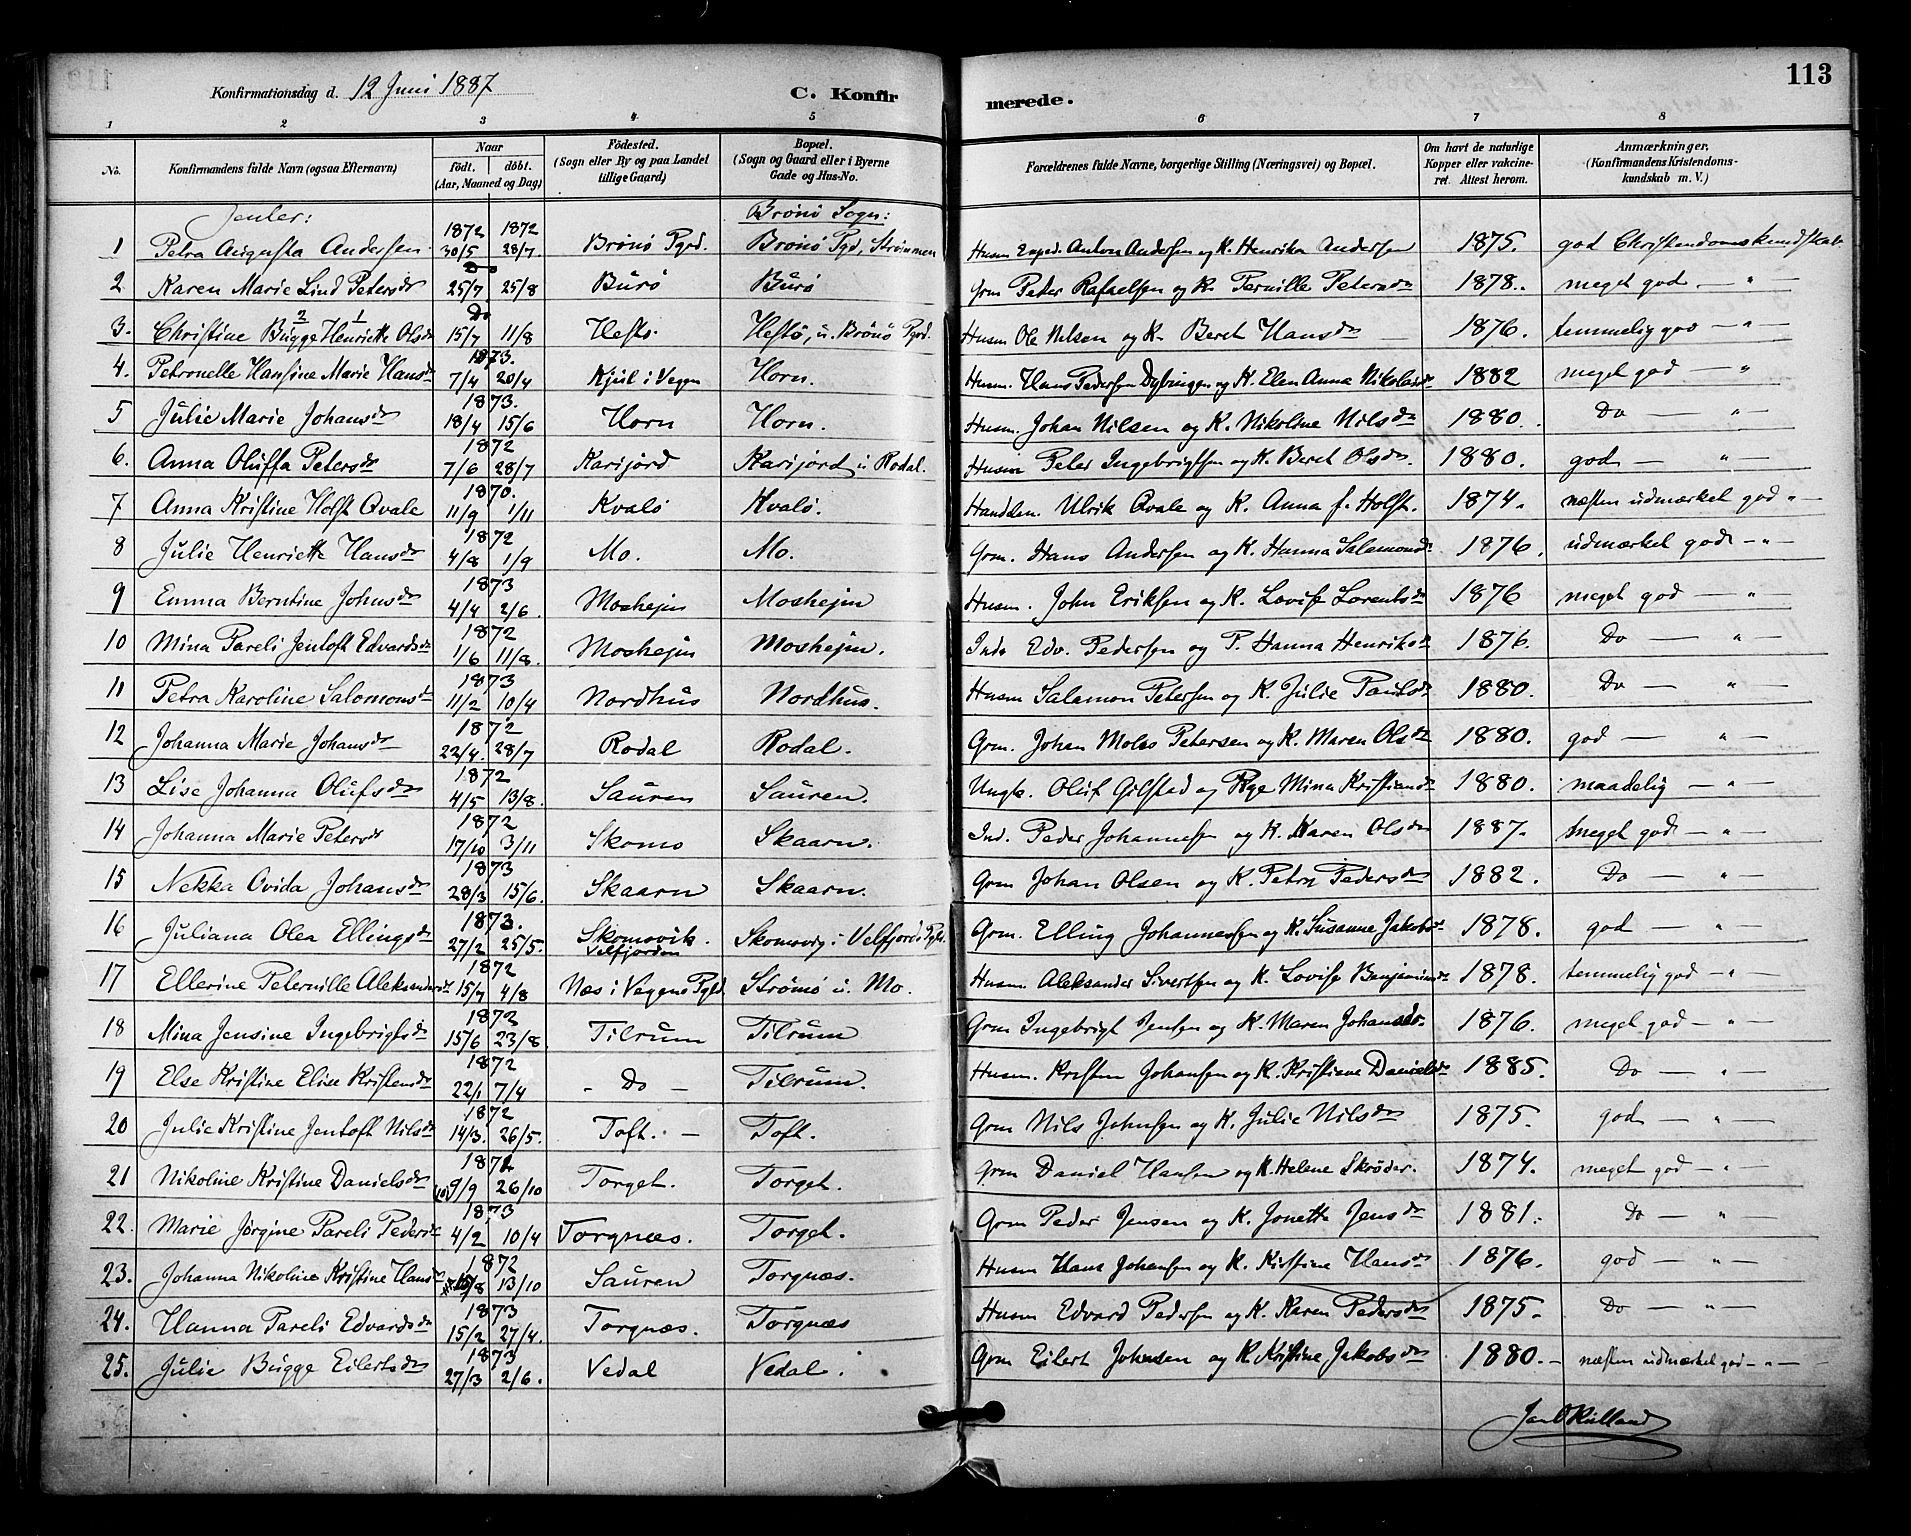 113
Konfirmationsdag d. 12 Juni 1887
C. Konfirmerede.
1 2 3 4 5 6 7 8
No. Konfirmandens fulde Navn (ogsaa Efternavn) Naar födt. döbt. (Aar, Maaned og Dag) Födested. (Sogn eller By og paa Landet tillige Gaard) Bopæl. (Sogn og Gaard eller i Byerne Gade og Hus-No. Forældrenes fulde Navne, borgerlige Stilling (Næringsvei) og Bopæl. Om havt de naturlige Kopper eller vakcineret. Attest herom. Anmærkninger. (Konfirmandens Kristendomskundskab m. V.)
Jenter: Brönö Sogn:
1 Petra Augusta Andersen 1872 30/5 1872 28/7 Brönö Pgrd. Brönö Pgd, Strömmen Husm Anton Andersen og K. Henrika Andersen 1875. god Christendomskundskab
2 Karen Marie Lind Petersdr Do 25/7 25/8 Burö Burö Grm Peder Rafaelsen og K. Pernille Petersdr 1878. meget god — " —
3. Christine Bugge Henriette Olsdr Do 15/7 11/8 Hestö Hestö, u. Brönö Pgrd. Husm Ole Nilsen og K. Beret Hansdr 1876. temmelig god — " —
4. Petronelle Hansine Marie Hansdr 1873. 7/4 20/4 Kjul i Vegen Horn. Husm. Hans Pedersen Dybingen og K. Elen Anna Nikolaidr 1882 meget god — "
5 Julie Marie Johansdr 1873. 18/4 15/6 Horn Horn. Husm. Johan Nilsen og K. Nikoline Nilsdr 1880. Do — " —
6. Anna Oluffa Petersdr 1872 7/6 28/7 Karijord Karijord u Rodal. Husm Peter Ingebrigtsen og K. Beret Olsdr. 1880. god — " —
7 Anna Kristine Holst Qvale 1870. 11/9 1/11 Kvalö Kvalö. Handlm. Ulrik Qvale og K. Anna f. Holst. 1874. næsten udmærket god " —
8 Julie Henriette Hansdr 1872 4/8 1/9 Mo. Mo. Grm. Hans Andersen og K. Hanna Salamonsdr 1876. udmærket god — " —
9 Emma Berntine Johnsdr 1873 4/4 2/6. Moshejm Moshejm Husm. John Eriksen og K. Lovise Lorentsdr 1876 meget god — " —
10 Mina Pareli Jentoft Edvardsdr 1872 1/6 11/8. Moshejm Moshejm. Inds Edv. Pedersen og P. Hanna Henriksdr 1876. Do — " —
11 Petra Karoline Salomonsdr 1873 11/2 10/4 Nordhus Nordhus. Husm Salamon Petersen og K. Julie Paulsdr 1880. Do — " —
12 Johanna Marie Johansdr 1872 22/4. 28/7 Rodal Rodal. Grm. Johan Moles Petersen og K. Maren Olsdr 1880. god — " —
13 Lise Johanna Olufsdr 1872 4/5 13/8. Sauren Sauren. Ungk. Oluf Gilstad og Pige Mina Kristiansdr 1880. maadelig — " —
14 Johanna Marie Petersdr 1872 17/10 3/11 Skomo Skaarn. Ind. Peder Johannesen og K. Karen Olsdr 1887. meget god — " —
15 Nekka Ovida Johansdr 1873 28/3 15/6. Skaarn Skaarn. Grm Johan Olsen og K. Petra Pedersdr 1882. Do — " —
16 Juliana Olea Ellingsdr 1873. 27/2 25/5. Skomovik. Velfjorden Skomovig i Velfjords Pgld. Grm. Elling Johannessen og K. Susanne Jakobsdr 1878. god — " —
17 Ellerine Peternille Aleksandersdr 1872 15/7 4/8 Næs i Vegens Pgld Strömö u. Mo. Husm Aleksander Sivertsen og K. Lovise Benjaminsdr 1878. temmelig god — " —
18 Mina Jensine Ingebrigtsdr 1872 15/6 23/8. Tilrum Tilrum Grm Ingebrigt Jensen og K. Maren Johansdr. 1876. meget god — " —
19 Else Kristine Elise Kristensdr 1872 22/1 7/4 - Do - Tilrum. Husm. Kristen Johansen og K. Kristine Danielsdr 1885. Do — " —
20 Julie Kristine Jentoft Nilsdr 1872 14/3. 26/5. Toft. — Toft. Grm Nils Johnsen og K. Julie Nilsdr 1875. god — " —
21 Nikoline Kristine Danielsdr 9/9 26/10 Torget. Torget. Grm Daniel Hansen og K. Helene Skröder. 1874. meget god — " —
22. Marie Jörgine Pareli Pedersdr 1873 4/2 10/4 Torgnæs. Torget. Grm Peder Jensen og K. Jonetta Jensdr 1881. Do — "
23. Johanna Nikoline Kristine Hansdr 1872 13/10 Sauren Torgnæs. Husm Hans Johansen og K. Kirstine Hansdr 1876. god — " —
24. Hanna Pareli Edvardsdr 1873 15/2 27/4. Torgnæs. Torgnæs Husm Edvard Pedersen og K. Karen Pedersdr 1875. Do — " —
25. Julie Bugge Eilertsdr 1873 27/3 2/6. Vedal Vedal. Grm Eilert Johnsen og K Kristine Jakobsdr 1880. næsten udmærket god — " —